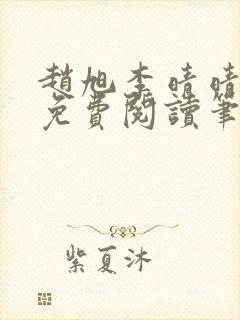 趙旭李晴晴
免費閱讀筆
紫夏沐